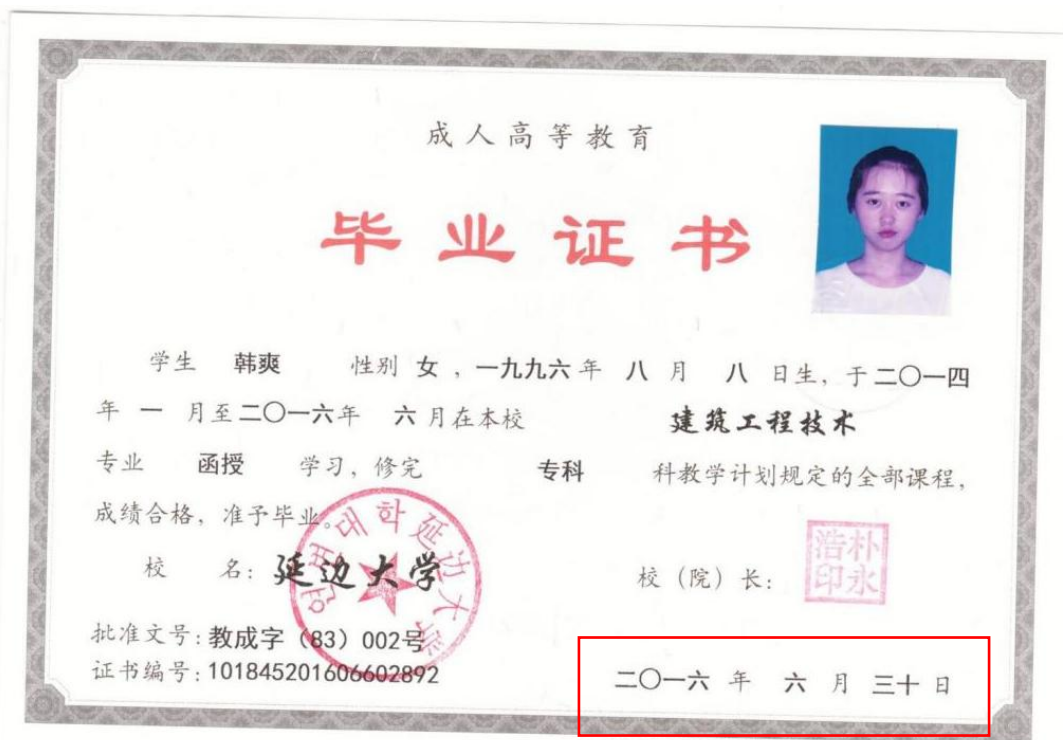 成人高等教育
毕业证书
学生 韩爽 性别 女，一九九六年 八 月 八 日生，于二〇一四
年 一 月至二〇一六年 六 月在本校 建筑工程技术
专业 函授 学习，修完 专科 科教学计划规定的全部课程，
成绩合格，准予毕业。
校 名：延边大学
연변대학 延边大学
校（院）长：
朴永浩印
批准文号：教成字（83）002号
证书编号：101845201606602892
二〇一六 年 六 月 三十 日